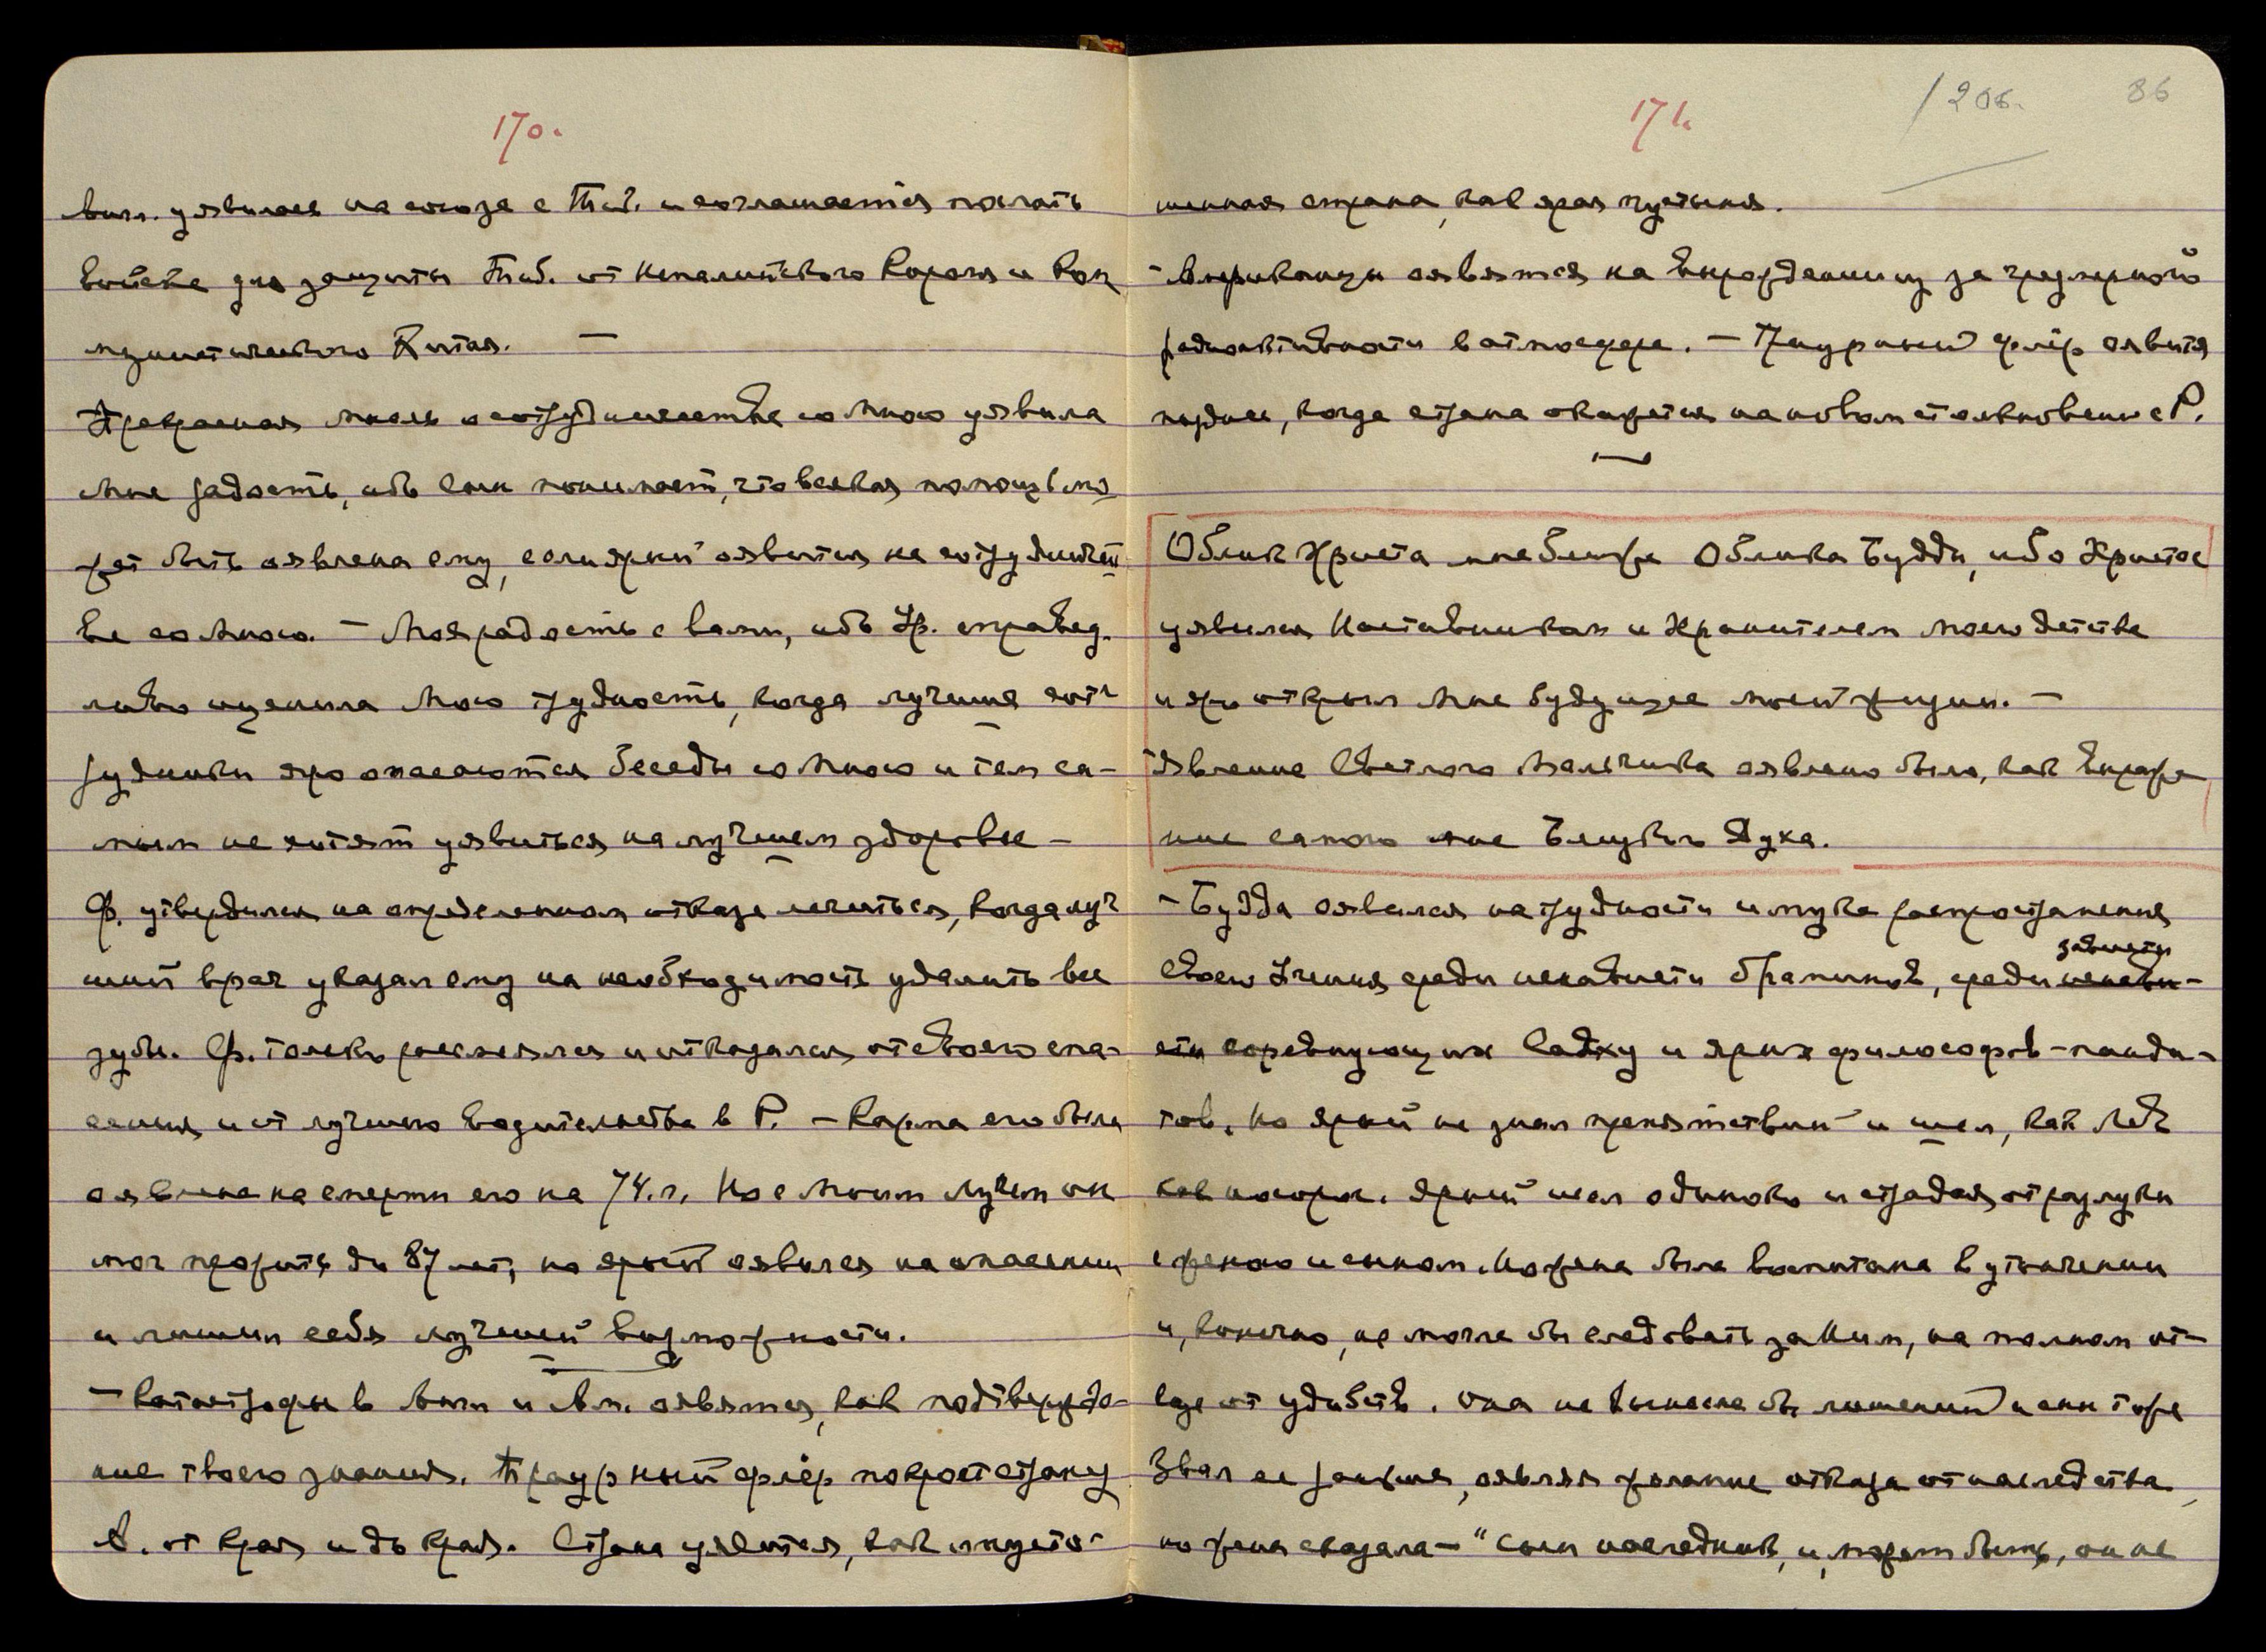 170.
Англ. уявилась на союзе с Тиб. и соглашается послать
войска для защиты Тиб. от Непалийского Короля и Ком
мунистического Китая. —
Прекрасная мысль о сотрудничестве со Мною уявила
Мне радость, ибо сын понимает, что всякая помощь мо
жет быть оявлена ему, если ярый оявится на сотрудничест
ве со Мною. — Моя радость с вами, ибо Ур. справед.
ливо оценила Мою трудность, когда лучшие сот-
рудники яро опасаются беседы со Мною и тем са-
мым не хотят уявиться на лучшем здоровье —
Ф. утвердился на определенном отказе лечиться, когда луч
ший врач указал ему на необходимость удалить все
зубы. Ф. только рассмеялся и отказался от своего спа-
сения и от лучшего водительства в Р. — Карма его была
оявлена на смерти его на 74. г. Но с Моим Лучом он
мог прожить до 87 лет, но ярый оявился на опасении
и лишил себя лучшей возможности.
— Катастрофы в Англ. и Ам. оявятся, как подтвержде-
ние твоего знания. Траурный флёр покроет страну
А. от края и до края. Страна уявится, как опусто-
171.
/ 2 об.
86
шенная страна, как ярая пустыня.
— Американцы оявятся на вырождении из за чрезмерной
радиоактивности в атмосфере. — Траурный флёр оявится
позднее, когда страна окажется на новом столкновении с Р.
—
Облик Христа мне ближе Облика Будды, ибо Христос
уявился Наставником и Хранителем моего детства
и яро открыл мне будущее моей жизни. —
Явление Светлого Мальчика оявлено было, как выраже
ние самого мне Близкого Духа.
— Будда оявился на трудности и муке распространения
своего Учения среди ненависти браминов, среди ненави- зависти
сти соревнующих Садху и ярых философов-панди-
тов. Но ярый не знал препятствий и шел, как Лев
как носорог. Ярый шел одиноко и страдая от разлуки
с женою и сыном. Но жена была воспитана в утончении
и, конечно, не могла бы следовать за Ним, на полном от-
казе от удобств. Она не вынесла бы лишений и сын тоже
Звал ее раньше, оявляя желание отказа от наследства,
но жена сказала — "Сын наследник, и, может быть, он не